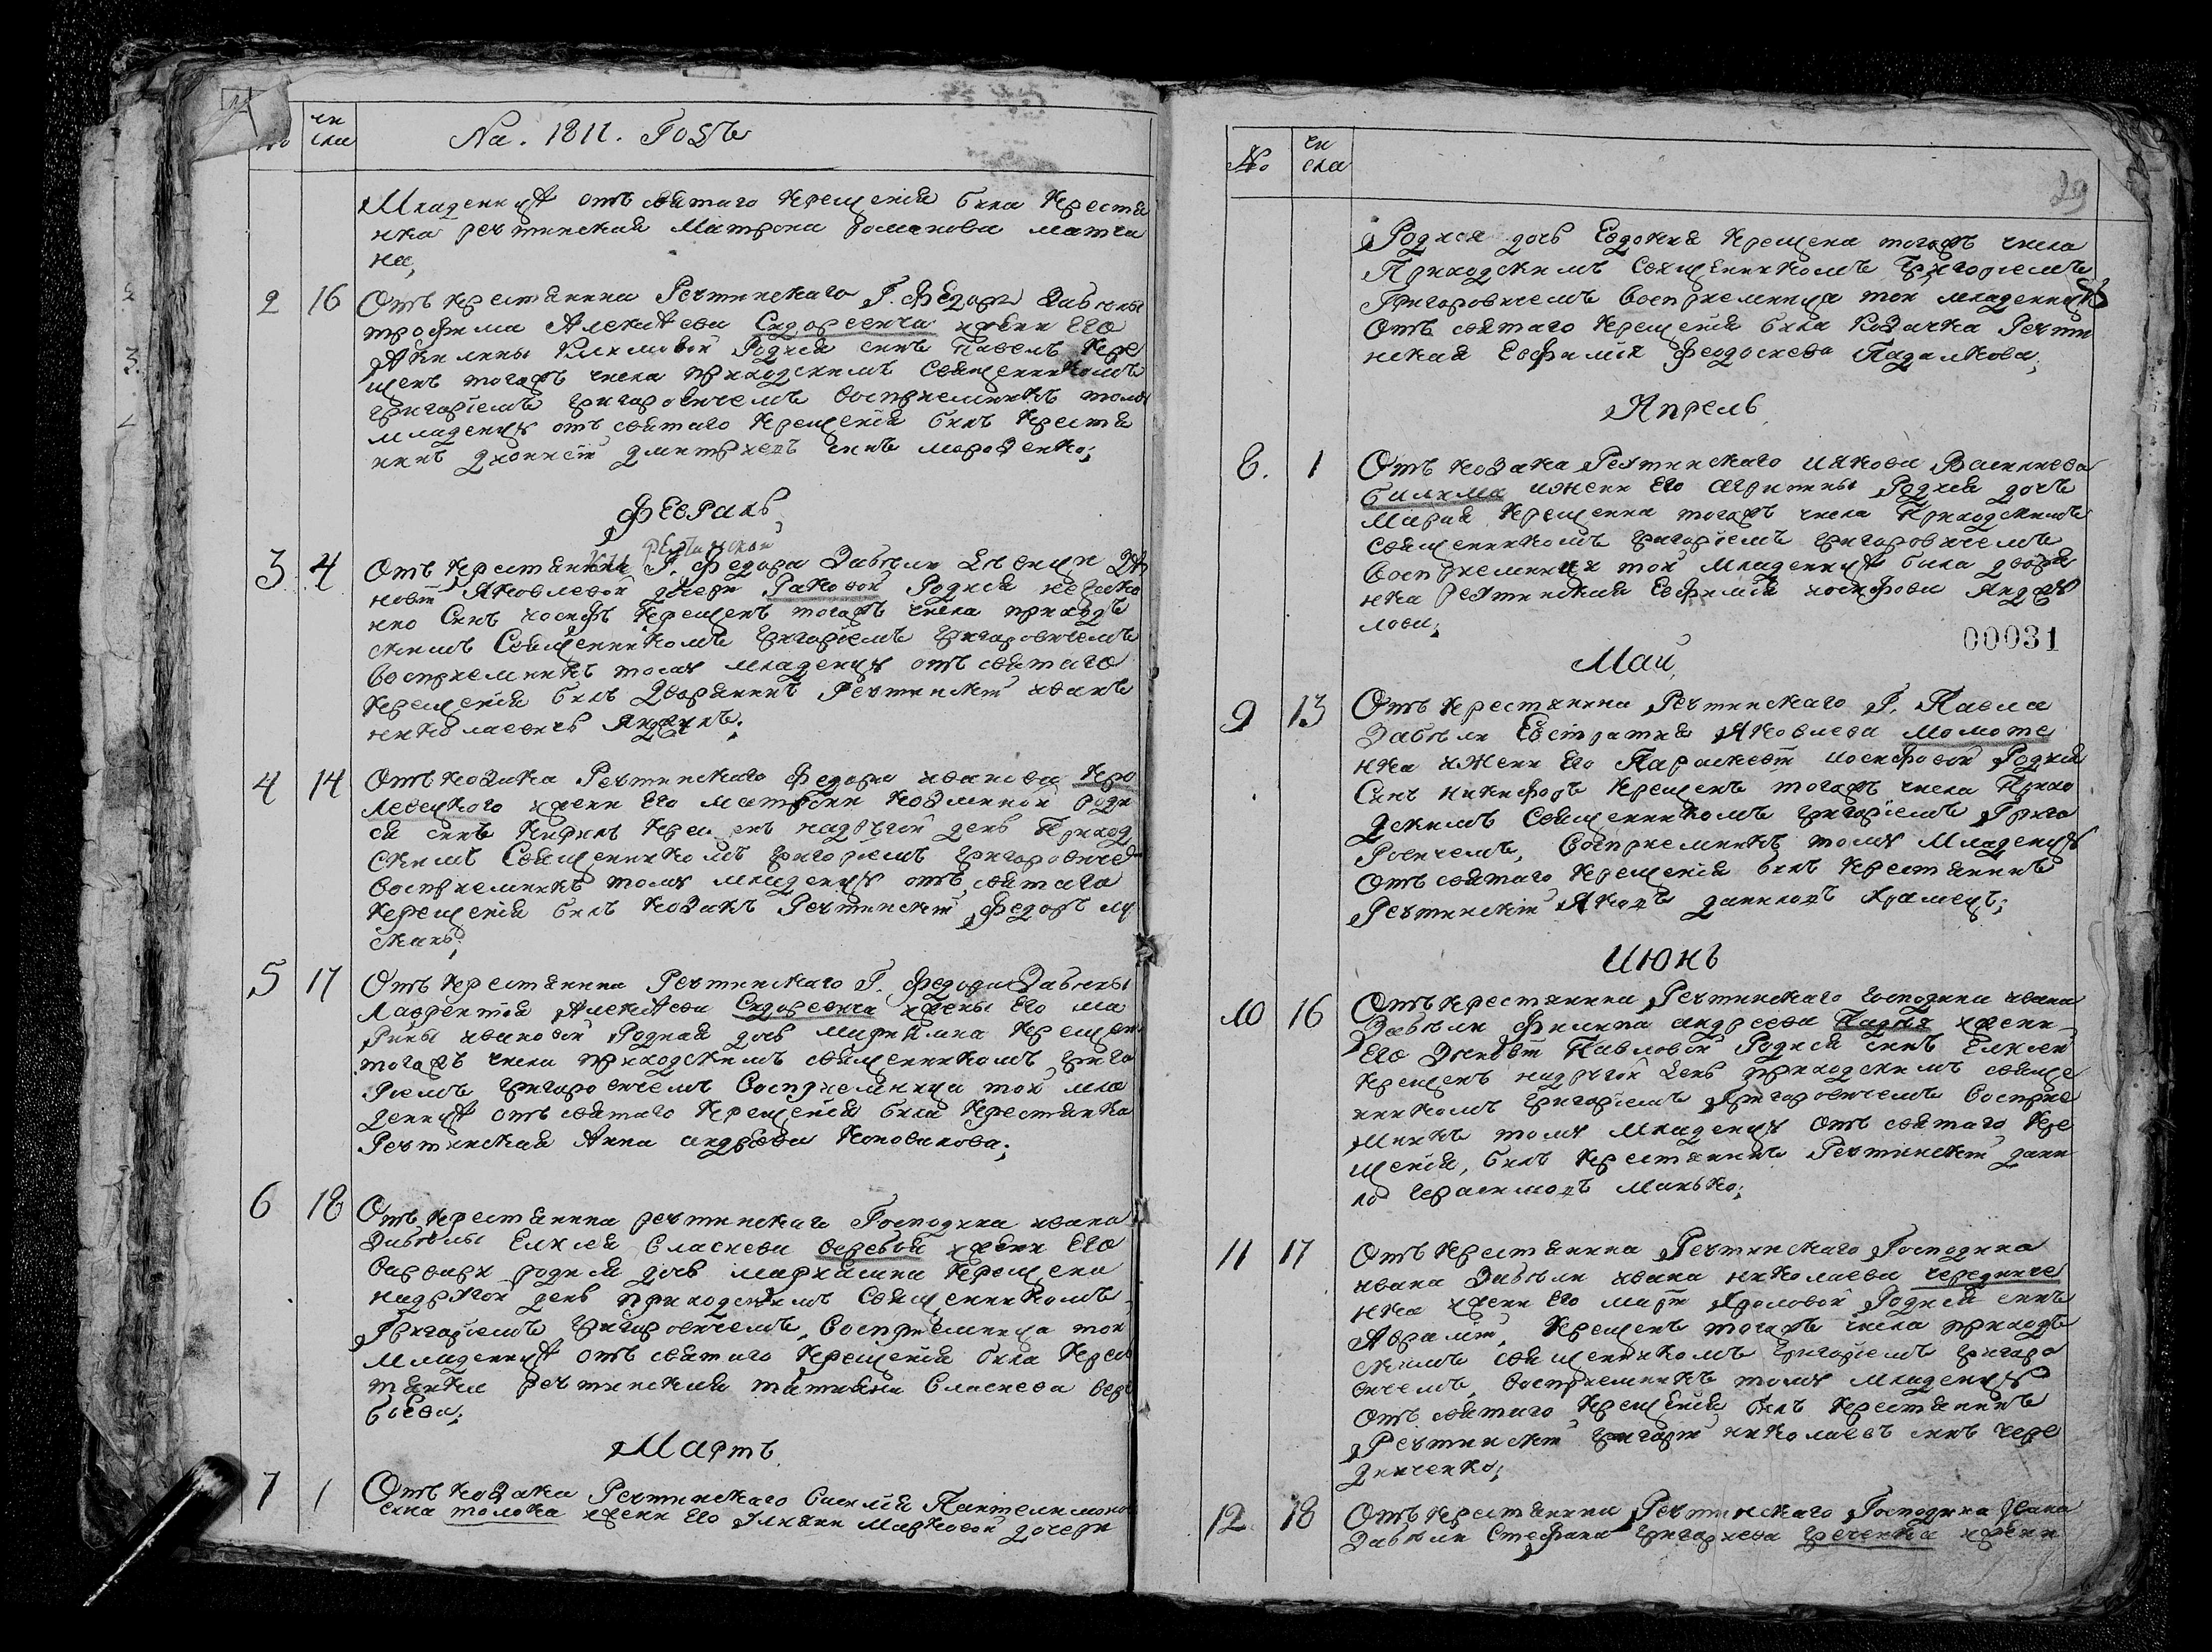 чи
сла
На. 1811. Годъ
Младенцѣ отъ святаго крещенія била крестя
нка речтинская Матрона романова матча
на;
2 16 Отъ крестянина Речтинскаго Г. Федора Забѣлы
трофима Алексѣева Сидоренча жени его
Акилины Климовой Родися синъ Павелъ кре
щенъ тогожъ числа приходскимъ священникомъ
григоріемъ григоровичемъ воспріемникъ тому
младенцу отъ святаго крещенія билъ крестя
нинъ дионисій дмитриевъ синъ морозенко;
Февраль
речтинской
3 4 Отъ крестянина Г. Федора Забѣли
Яковлевой дочери Раковой Родися незако
нно Синъ иосифъ крещенъ тогожъ числа приход
скимъ Священникомъ григоріемъ григоровичемъ
воспріемникъ тому младенцу отъ святаго
крещенія билъ дворянинъ Речтинскій иванъ
николаевичъ Янджулъ;
4 14 Отъ козака Речтинскаго Федора иванова кро
левецкого жени его матрони козминой роди
ся синъ Кирилъ крещенъ надругой день Приход
скимъ Священникомъ григоріемъ григоровиче
воспріемникъ тому младенцу отъ святаго
крещенія билъ козакъ Речтинскій Федоръ лу
скань;
5 17 Отъ крестянина Речтинскаго Г. Федора Забѣлы
Лаврентія Алексѣева Сидоренча жены его ма
рины ивановой Родися дочъ марикіана крещен
тогожъ числа приходскимъ священникомъ григо
ріемъ григоровичемъ воспріемница той мла
денцѣ отъ святаго крещенія била крестянка
Речтинская Анна андрѣева Коновалова;
6 18 Отъ крестянина речтинскаго Господина ивана
Забѣлы Елисея власиева веребея жени его
варвари родися дочъ маркиана крещена
надругой день приходскимъ священникомъ
Григоріемъ григоровичемъ, воспріемница той
младенцѣ отъ святаго крещенія била крес
тянка речтинская татияна власиева вере
бьева;
Мартъ
7 1 Отъ козака Речтинскаго василія Пантелимоно
вича толока жени его Улияни Марковой дочери
№ чи
сла
29
Родися дочъ Евдокия крещена тогожъ числа
Приходскимъ Священникомъ григоріемъ
Григоровичемъ воспріемница той младенцѣ
отъ святаго крещенія била козачка Речти
нская Евфимія Феодосиева Падалкова;
Апрель
8. 1 Отъ козака Речтинскаго иякова Василиева
билима ижени его агрипины Родися дочъ
Мария крещенна тогожъ числа Приходскимъ
священникомъ григоріемъ григоровичемъ
воспріемница той младенцѣ била дворя
нка речтинская Евфимія иосифова Янджу
лова;
00031
Май,
9 13 Отъ крестянина Речтинскаго Г. Павла
Забѣли Евстратия Яковлева момоте
нка ижени его Параскевіи иосифовой Родися
Синъ никифоръ крещенъ тогожъ числа Прихо
дскимъ священникомъ григоріемъ Григо
ровичемъ, воспріемникъ тому Младенцу
отъ святаго крещенія билъ крестянинъ
Речтинскій Яковъ даниловъ храмецъ;
Июнь
10 16 Отъ крестянина Речтинскаго господина ивана
Забѣли филипа андреева жени
его Павловой Родися синъ Елисей
крещенъ надругой день приходскимъ свяще
нникомъ григоріемъ григоровичемъ воспріе
мникъ тому младенцу отъ святаго кре
щенія, билъ крестянинъ Речтинскій дани
ло герасимовъ манько;
11 17 Отъ крестянина Речтинскаго Господина
ивана Забѣли ивана николаева чередниче
нка жени его марфи Фроловой Родися синъ
Аврамій, крещенъ тогожъ числа приход
скимъ священникомъ григоріемъ григоро
вичемъ, воспріемникъ тому младенцу
отъ святаго крещенія билъ крестянинъ
Речтинскій григорій николаевъ синъ чере
дниченко;
12 18 Отъ крестянина Речтинскаго Господина Ивана
Забѣли Стефана григориева греченка жени